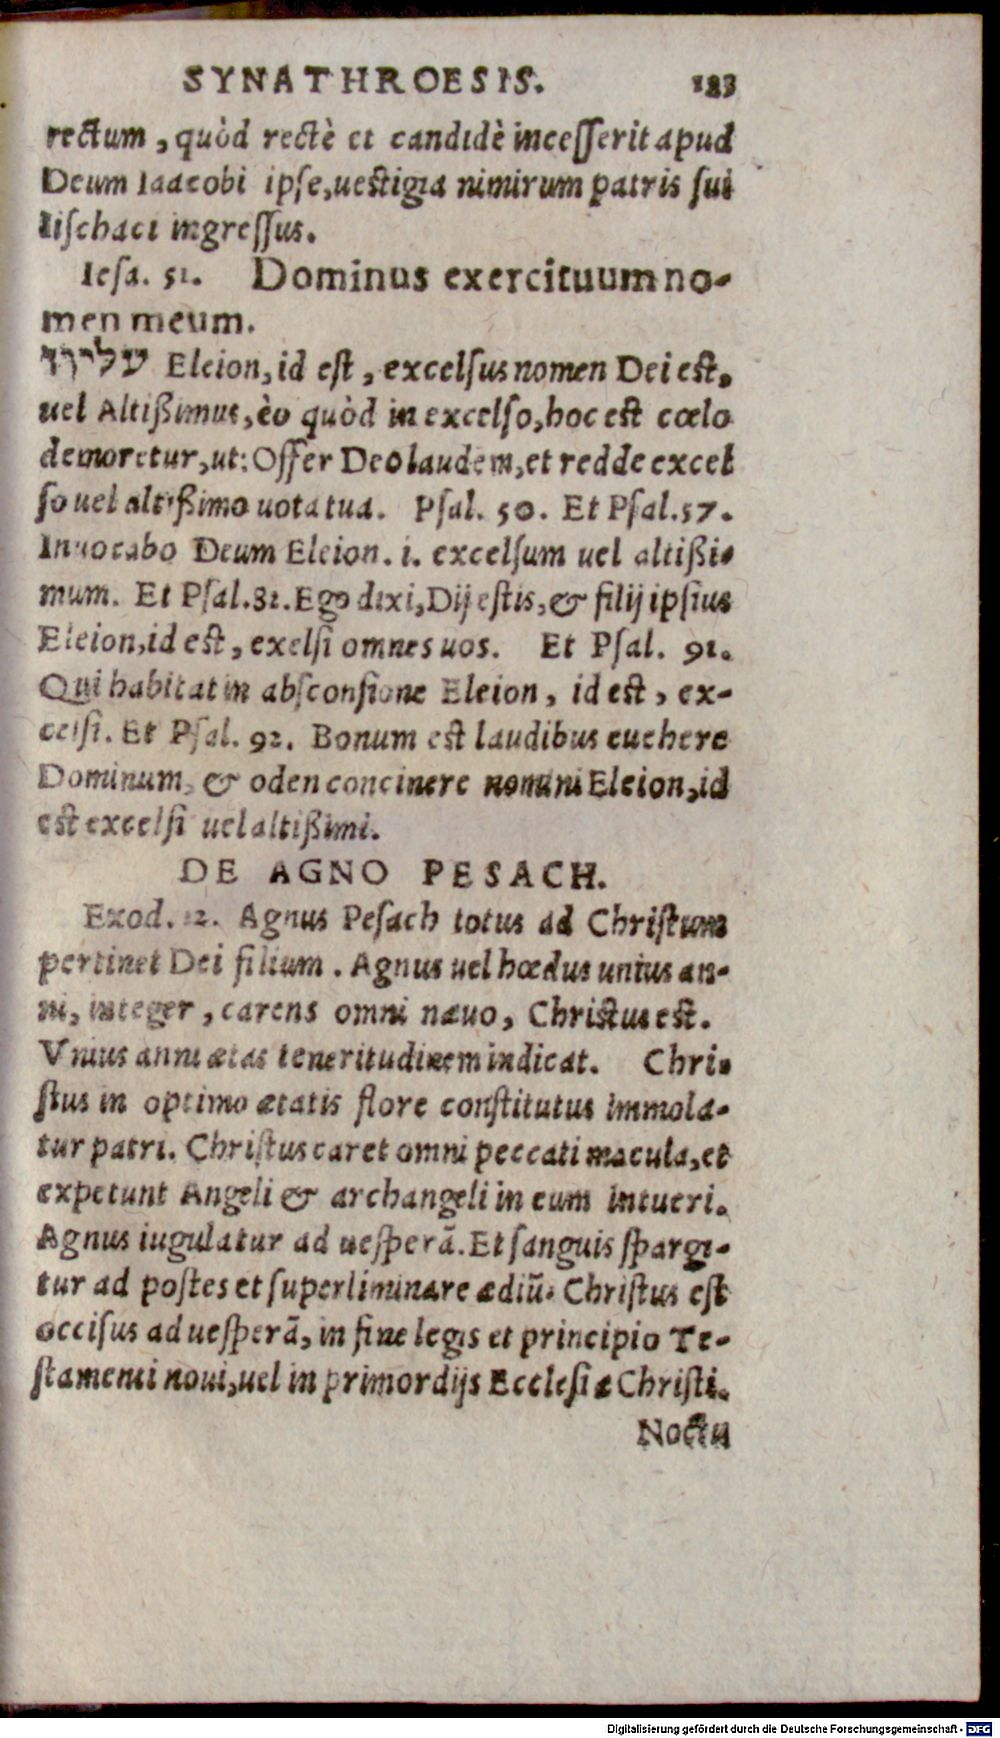 SYNATHROESIS. 183
rectum, quòd rectè et candidè incesserit apud
Deum Iaacobi ipse, uestigia nimirum patris sui
Iischaci ingressus.
Iesa. 51. Dominus exercituum no-
men meum.
עליון Eleion, id est, excelsus nomen Dei est,
uel Altißimus, èo quòd in excelso, hoc est cœlo
demoretur, ut: Offer Deo laudem, et redde excel
so uel altißimo uota tua. Psal. 50. Et Psal. 57.
Inuocabo Deum Eleion. i. excelsum uel altißi-
mum. Et Psal. 82. Ego dixi, Dij estis, & filij ipsius
Eleion, id est, exelsi omnes uos. Et Psal. 91.
Qui habitat in absconsione Eleion, id est, ex-
celsi. Et Psal. 92. Bonum est laudibus euehere
Dominum, & oden concinere nomini Eleion, id
est excelsi uel altißimi.
DE AGNO PESACH.
Exod. 12. Agnus Pesach totus ad Christum
pertinet Dei filium. Agnus uel hœdus unius an-
ni, integer, carens omni næuo, Christus est.
Vnius anni ætas teneritudinem indicat. Chri-
stus in optimo ætatis flore constitutus immola-
tur patri. Christus caret omni peccati macula, et
expetunt Angeli & archangeli in eum intueri.
Agnus iugulatur ad uesperã. Et sanguis spargi-
tur ad postes et superliminare ædiũ. Christus est
occisus ad uesperã, in fine legis et principio Te-
stamenti noui, uel in primordijs Ecclesiæ Christi.
Noctu
Digitalisierung gefördert durch die Deutsche Forschungsgemeinschaft - DFG